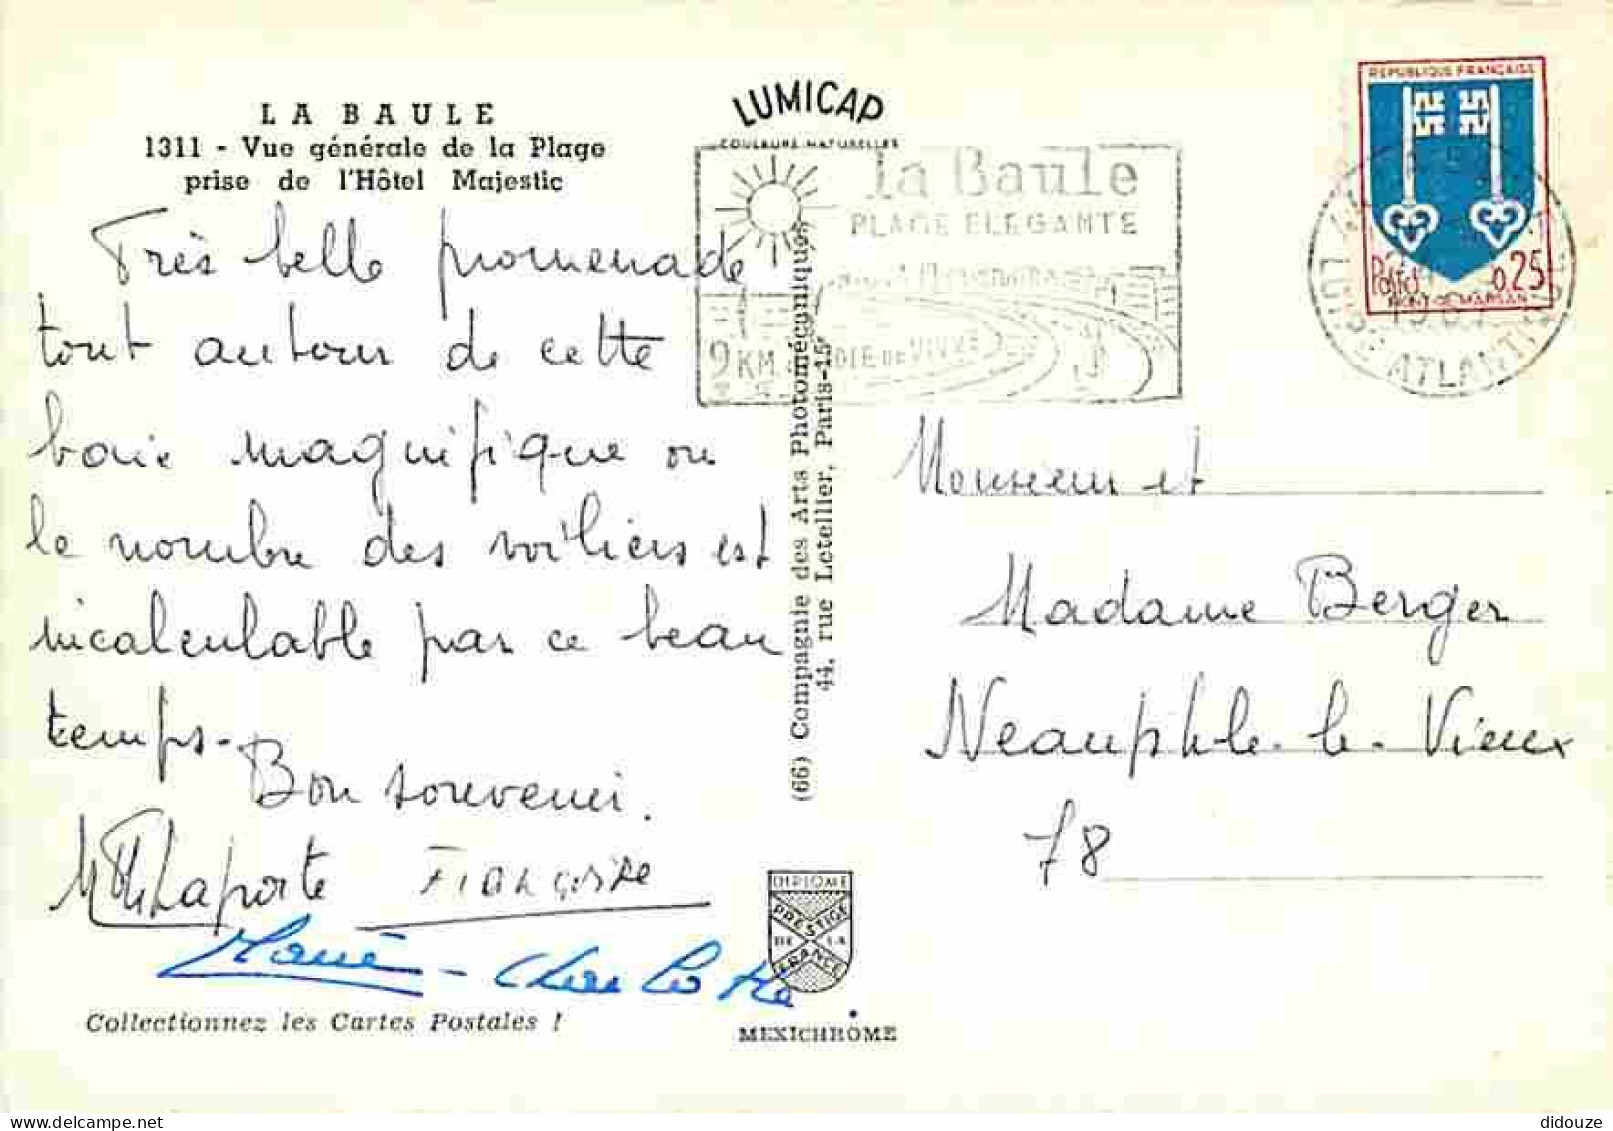 LA BAULE
1311 - Vue générale de la Plage
prise de l'Hôtel Majestic
Très belle promenade
tout autour de cette
baie magnifique ou
le nombre des voiliers est
incalculable par ce beau
temps-
Bon souvenir.
Laporte Françoise
Charlotte
Collectionnez les Cartes Postales !
LUMICAP
COULEURS NATURELLES
la Baule
PLAGE ELEGANTE
9 KM DE JOIE DE VIVRE
(66) Compagnie des Arts Photomécaniques
44, rue Letellier, Paris-15e
DIPLOME
PRESTIGE
DE LA
FRANCE
MEXICHROME
REPUBLIQUE FRANÇAISE
Postes 0,25
MONT-DE-MARSAN
LOIRE ATLANTIQUE
Monsieur et
Madame Berger
Neauphle-le-Vieux
78
didouze